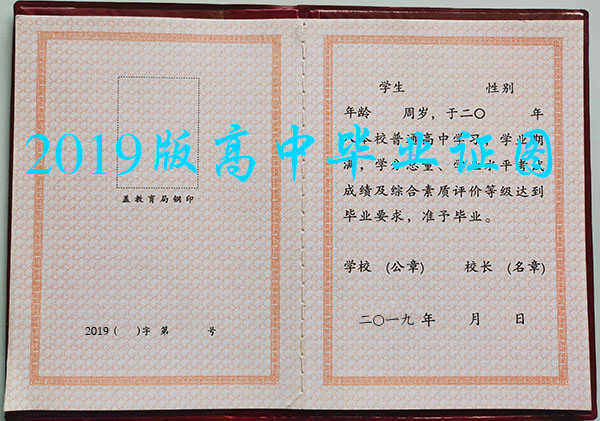 盖教育局钢印
2019（ ）字 第 号
学生 性别
年龄 周岁，于二〇 年
本校普通高中学习 学业期
满，学分总量、学业水平考试
成绩及综合素质评价等级达到
毕业要求，准予毕业。
学校 (公章) 校长 (名章)
二〇一九 年 月 日
2019版高中毕业证图